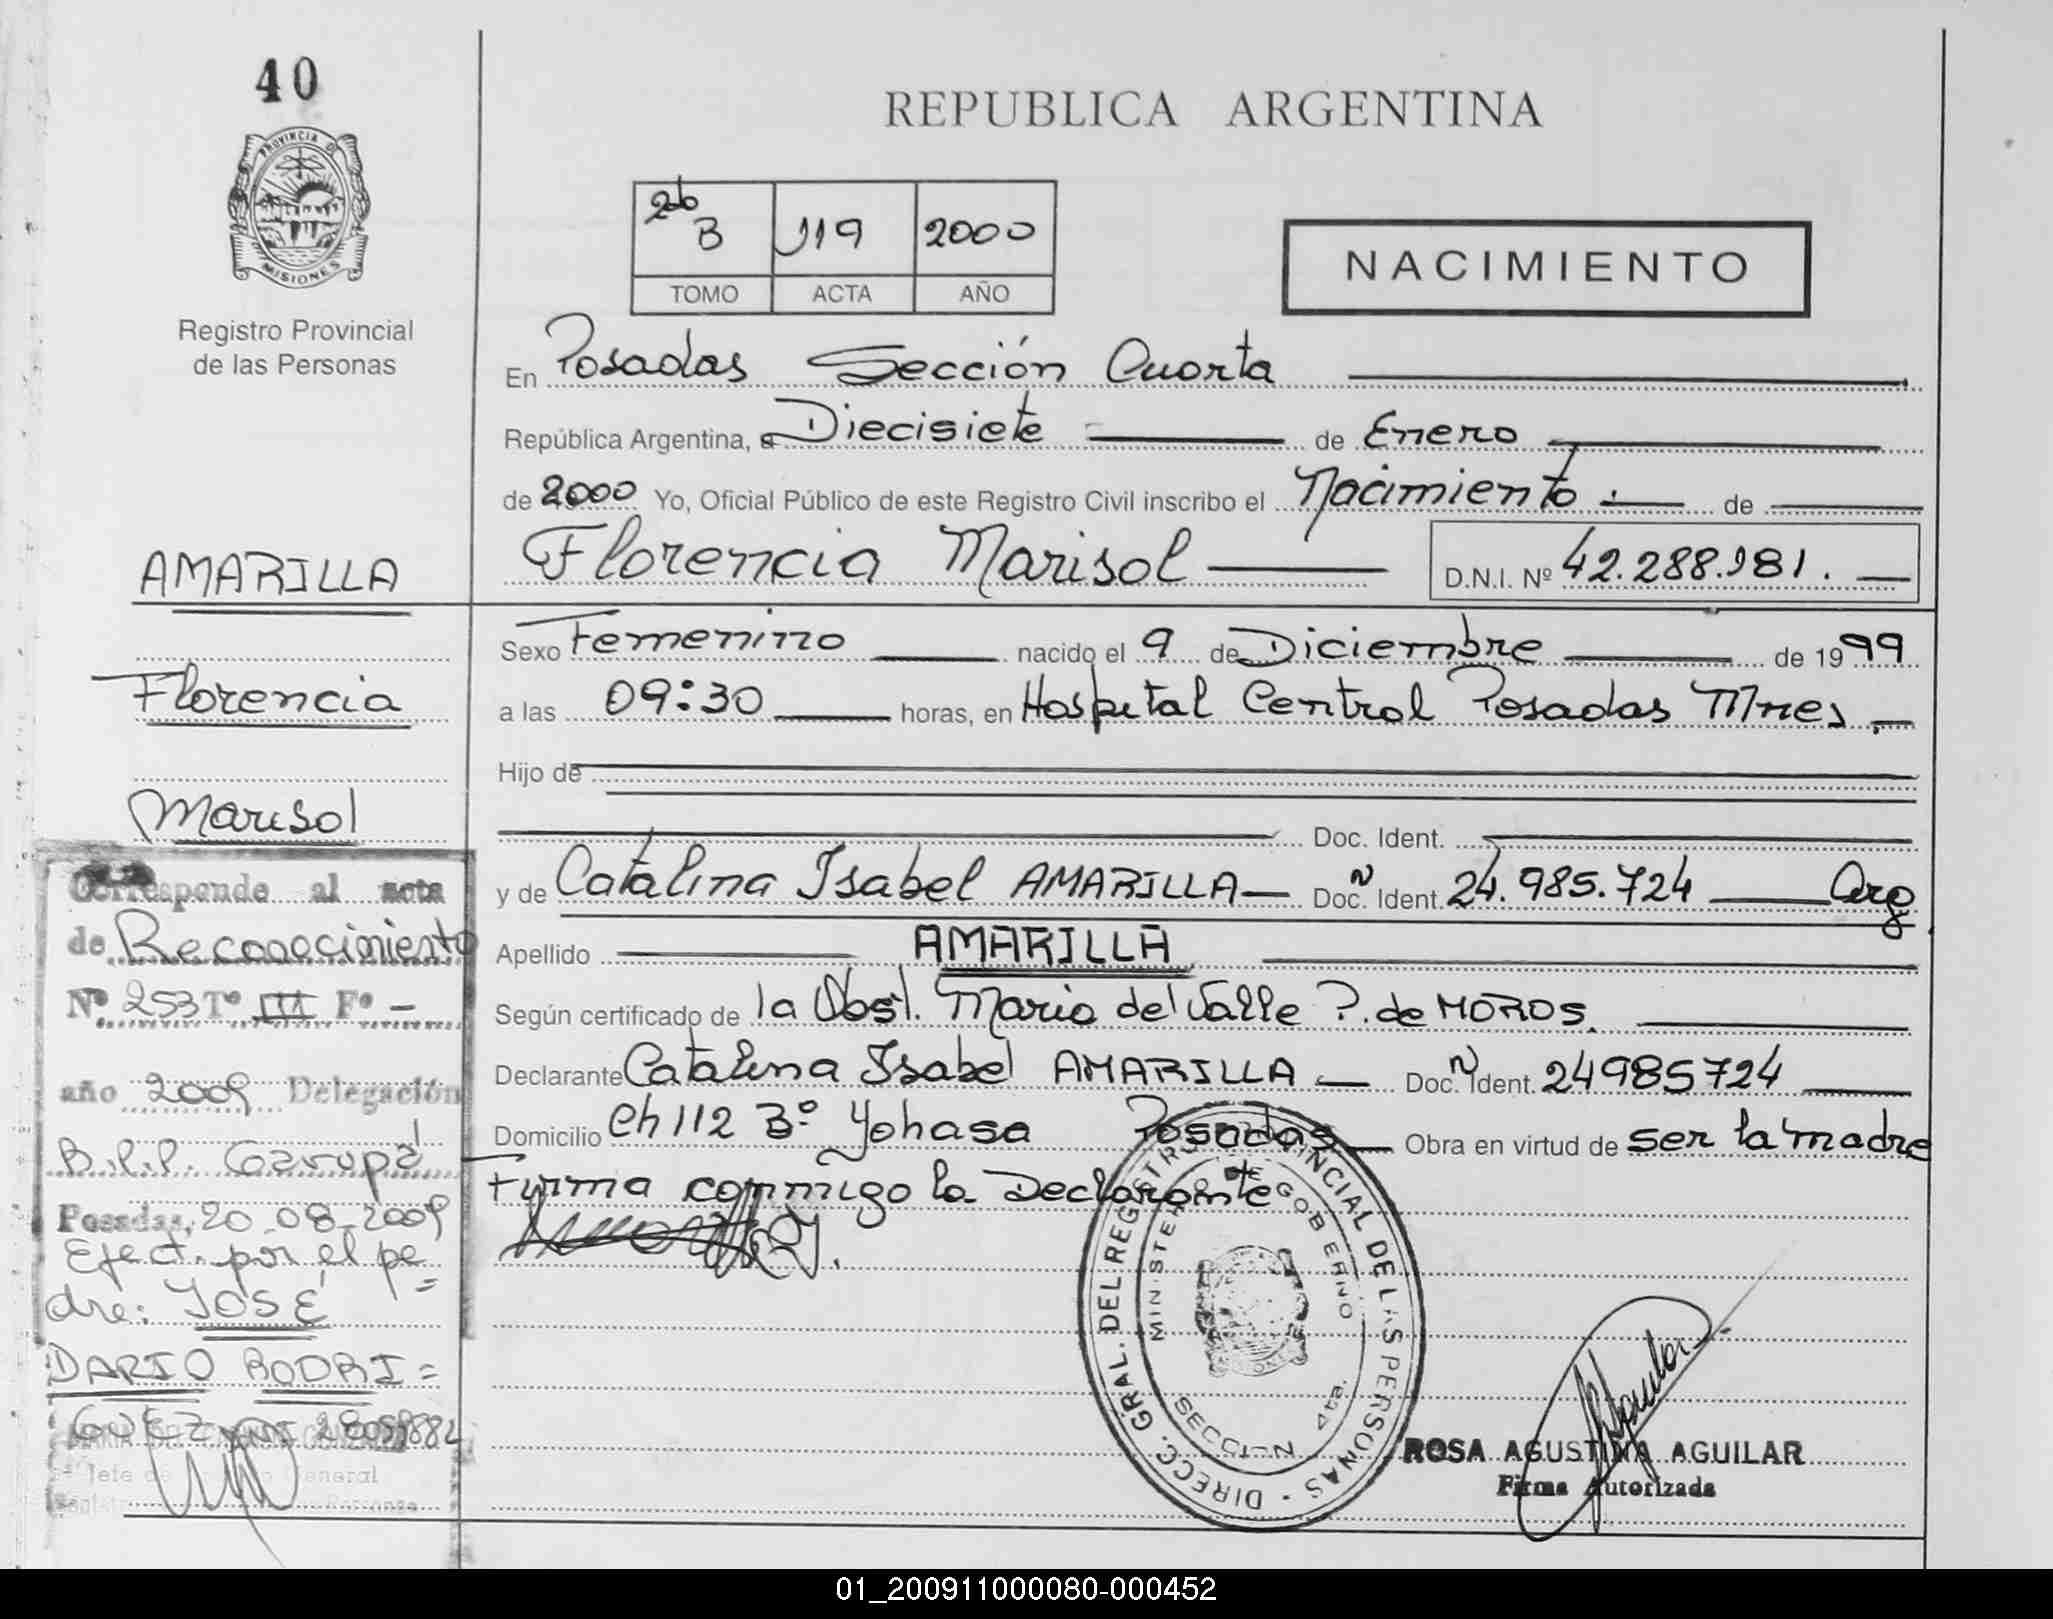 40
PROVINCIA D
MISIONES
Registro Provincial
de las Personas
REPUBLICA ARGENTINA
B 119 2000
TOMO ACTA AÑO
NACIMIENTO
En Posadas Sección Cuarta
República Argentina, a Diecisiete de Enero
de 2000 Yo, Oficial Público de este Registro Civil inscribo el Nacimiento de
Florencia Marisol D.N.I. Nº 42.288.981.
Sexo Femenino nacido el 9 de Diciembre de 1999
a las 09:30 horas, en Hospital Central Posadas Mnes
Hijo de
Doc. Ident.
y de Catalina Isabel AMARILLA Doc. N Ident. 24.985.724 Arg
Apellido AMARILLA
Según certificado de la Obst. Maria del Valle P. de MOROS.
Declarante Catalina Isabel AMARILLA Doc. N Ident. 24985724
Domicilio Ch 112 Bº Yohasa Posadas Obra en virtud de ser la madre
Firma conmigo la Declarante
DIRECC. GRAL. DEL REGISTRO PROVINCIAL DE LAS PERSONAS
MINISTERIO DE GOBIERNO
SECCION 4ta.
ROSA AGUSTINA AGUILAR
Firma Autorizada
AMARILLA
Florencia
Marisol
Corresponde al acta
de Reconocimiento
Nº 253 Tº III Fº -
año 2009 Delegación
B.P.P. Garupá
Posadas, 20-08-2009
Efect. por el pa=
dre: JOSÉ
DARIO RODRI=
GUEZ
Jefe General
01_200911000080-000452